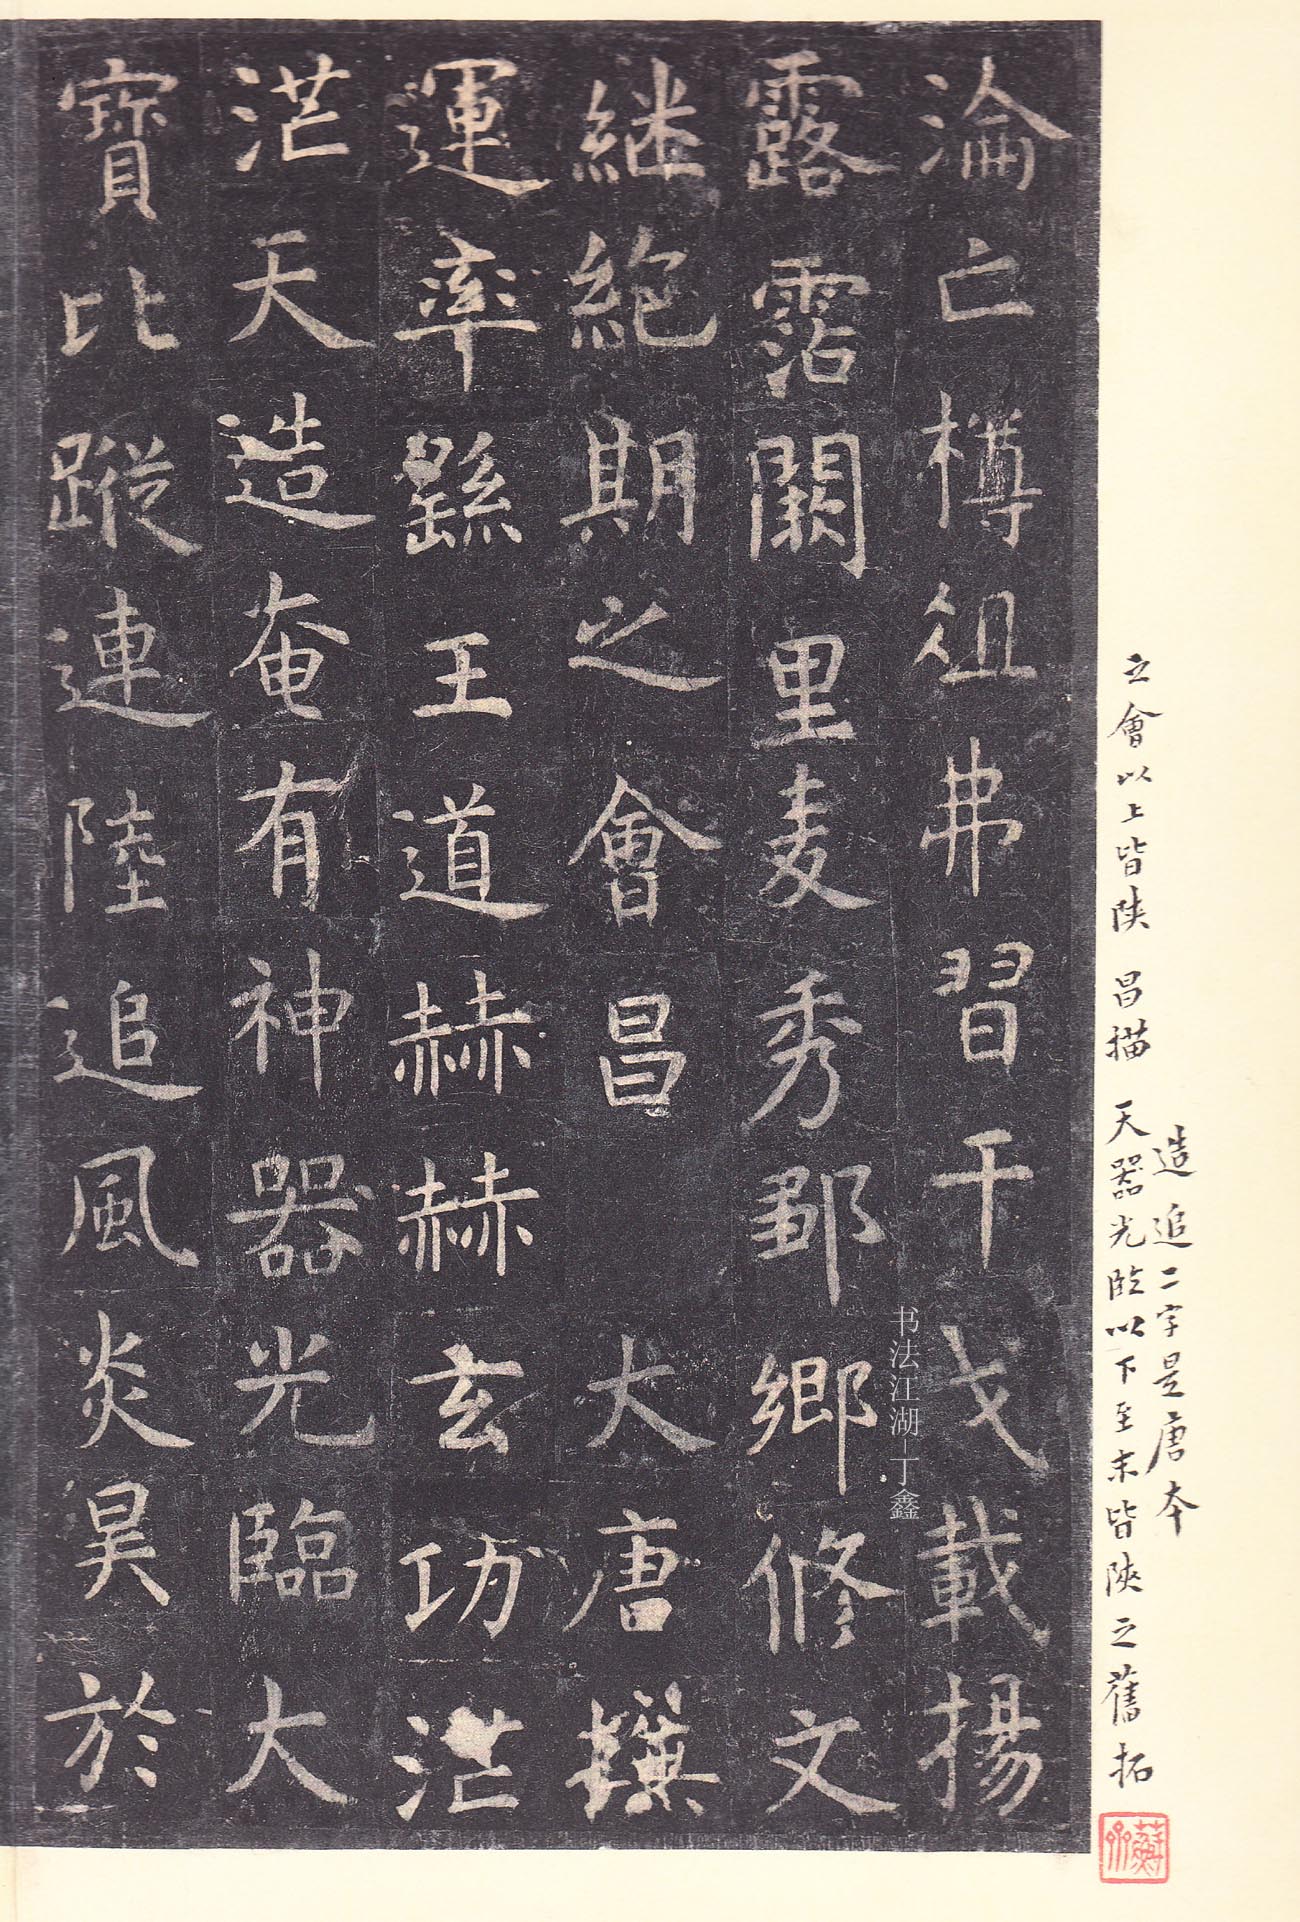 造追二字是唐本
之會以上皆陝 昌描 天器光臨以下至末皆陝之舊拓
淪亡樽俎弗習干戈載揚
露霑闕里麦秀鄒鄉修文
継絶期之會昌 大唐撰
運率繇王道赫赫玄功茫
茫天造奄有神器光臨大
寳比蹤連陸追風炎昊於
书法江湖-丁鑫